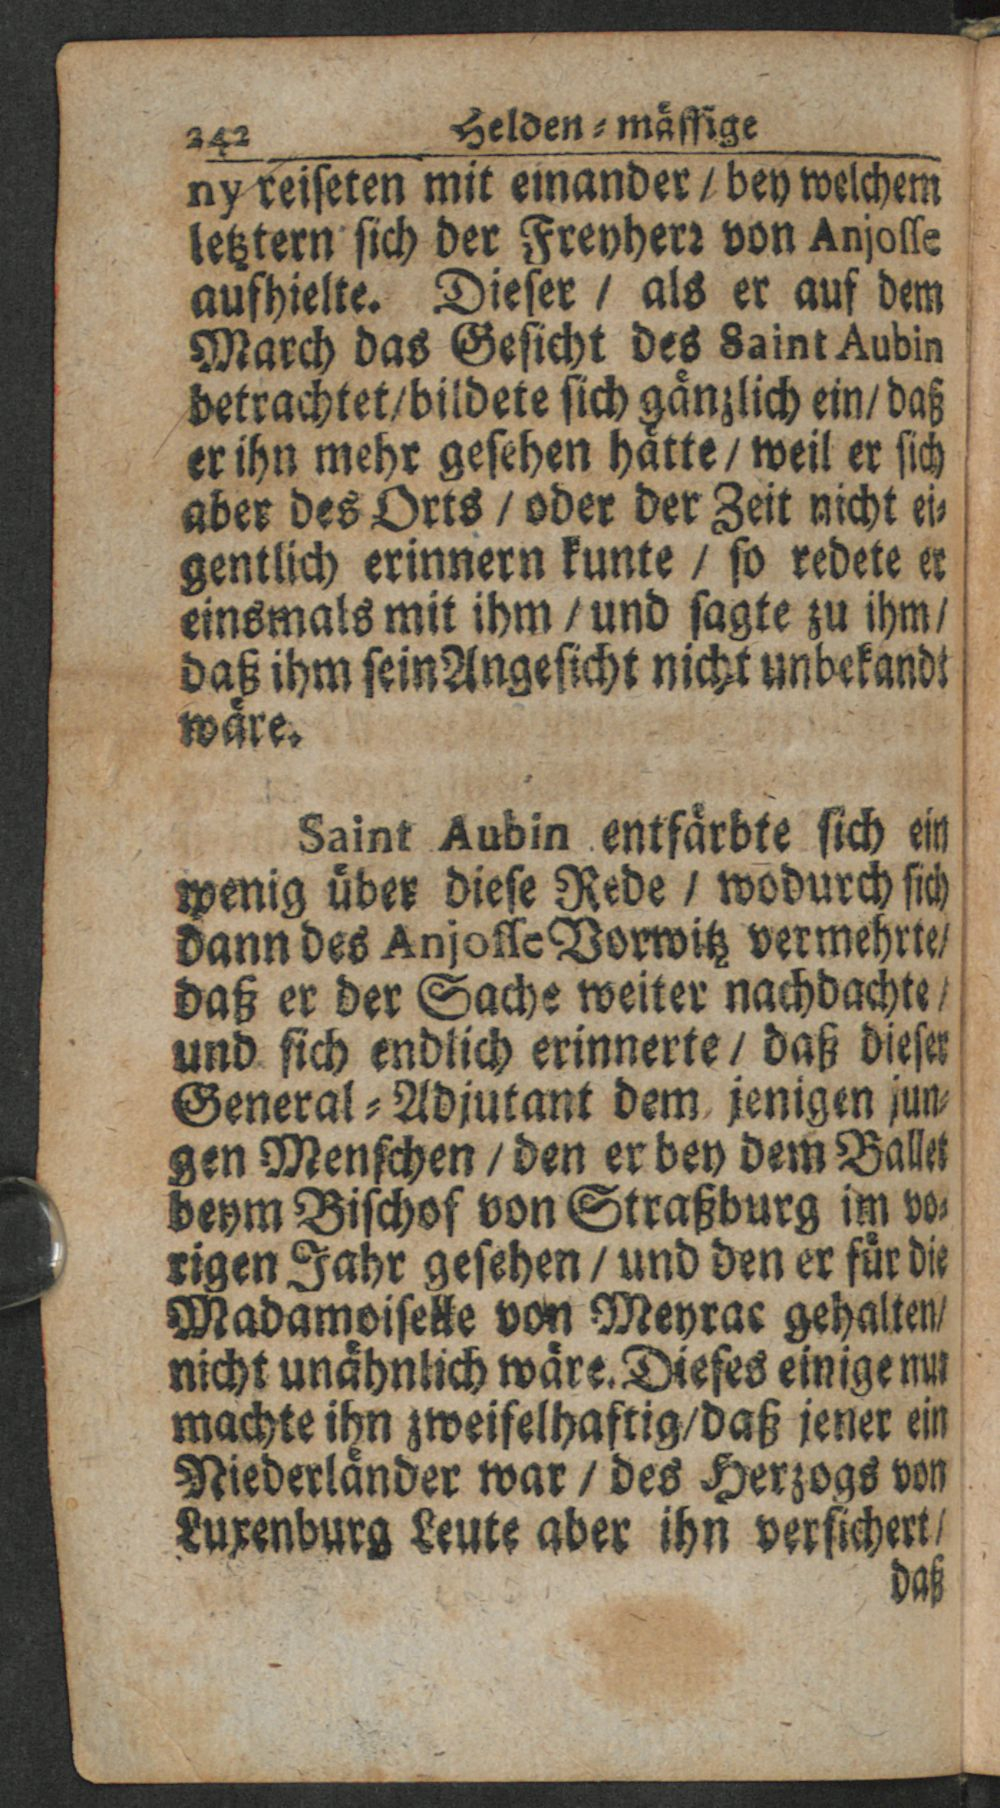 242 Helden-mässige
ny reiseten mit einander / bey welchem
letztern sich der Freyherr von Anjosse
aufhielte. Dieser / als er auf dem
March das Gesicht des Saint Aubin
betrachtet / bildete sich gäntzlich ein / daß
er ihn mehr gesehen hätte / weil er sich
aber des Orts / oder der Zeit nicht ei-
gentlich erinnern kunte / so redete er
einsmals mit ihm / und sagte zu ihm /
daß ihm sein Angesicht nicht unbekandt
wäre.
Saint Aubin entfärbte sich ein
wenig über diese Rede / wodurch sich
dann des Anjosse Vorwitz vermehrte /
daß er der Sache weiter nachdachte /
und sich endlich erinnerte / daß dieser
General-Adjutant dem jenigen jun-
gen Menschen / den er bey dem Ballet
beym Bischof von Straßburg im vo-
rigen Jahr gesehen / und den er für die
Madamoiselle von Meyrac gehalten /
nicht unähnlich wäre. Dieses einige nur
machte ihn zweifelhaftig / daß jener ein
Niederländer war / des Herzogs von
Luxenburg Leute aber ihn versichert /
daß